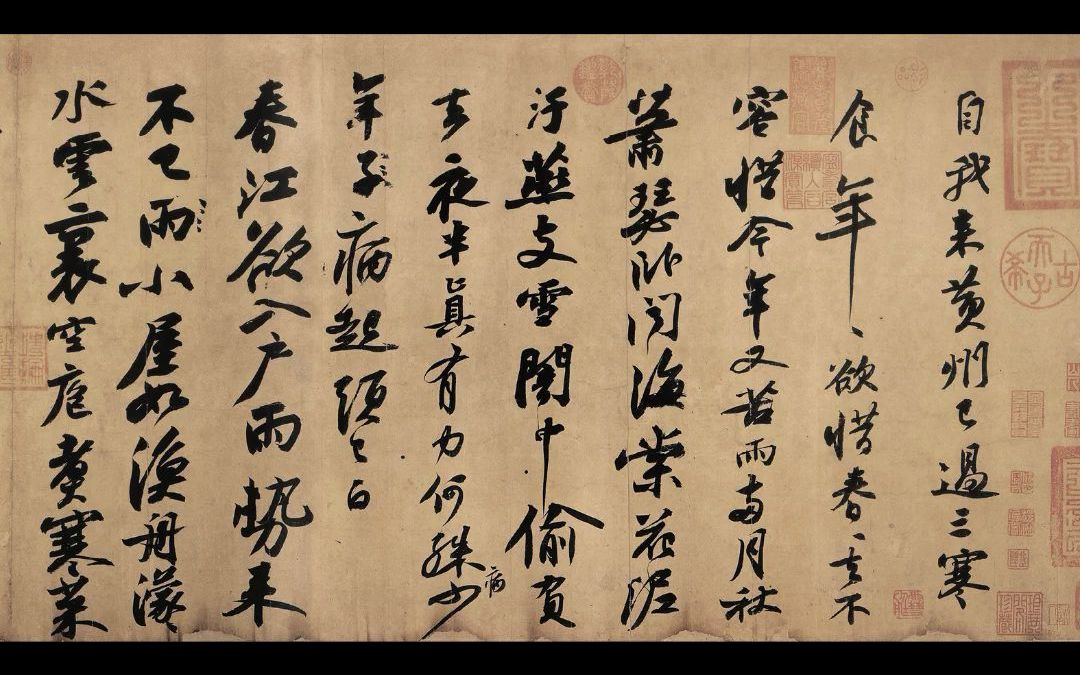 自我来黄州已過三寒
食年〻欲惜春〻去不
容惜今年又苦雨兩月秋
蕭瑟卧聞海棠花泥
汙燕支雪闇中偷負
去夜半真有力何殊少病
年子病起頭已白
春江欲入戶雨勢来
不已雨小屋如漁舟濛〻
水雲裏空庖煮寒菜
古希天子